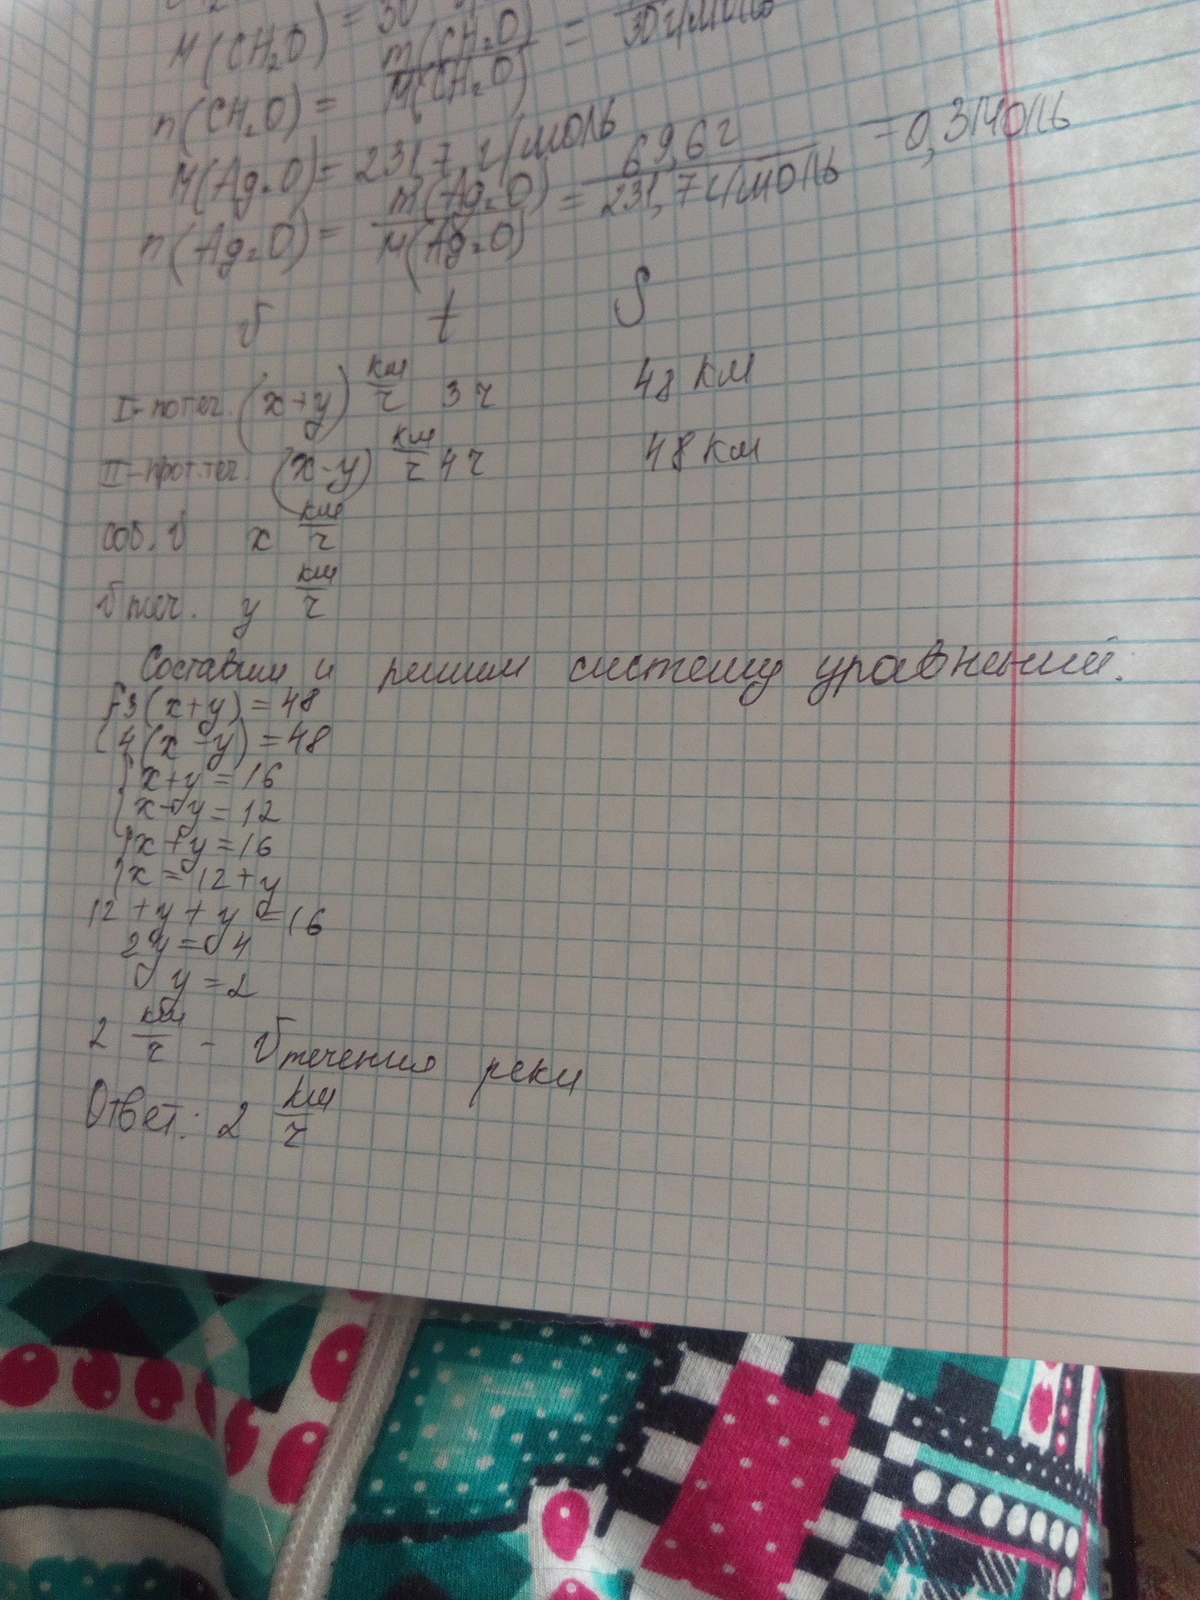 M(CH₂O) = 30
n(CH₂O) = m(CH₂O) / M(CH₂O) = 30 г/моль
M(Ag₂O) = 231,7 г/моль
n(Ag₂O) = m(Ag₂O) / M(Ag₂O) = 69,6 г / 231,7 г/моль = 0,3 моль
v t S
I - по теч. (x+y) км/ч 3 ч 48 км
II - прот. теч. (x-y) км/ч 4 ч 48 км
соб. v x км/ч
v теч. y км/ч
Составим и решим систему уравнений:
{3(x+y) = 48
4(x-y) = 48
{x+y = 16
x-y = 12
{x+y = 16
x = 12+y
12+y+y = 16
2y = 4
y = 2
2 км/ч - v течения реки
Ответ: 2 км/ч